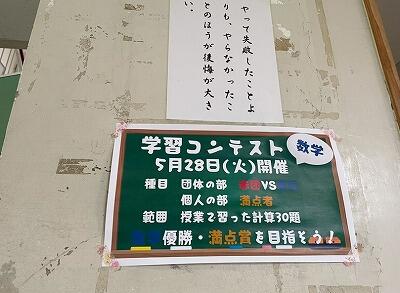 やって失敗したことよ
りも、やらなかったこ
とのほうが後悔が大き
い。
学習コンテスト
数学
5月28日(火)開催
種目 団体の部 VS
個人の部 満点者
範囲 授業で習った計算30題
優勝・満点賞を目指そう!